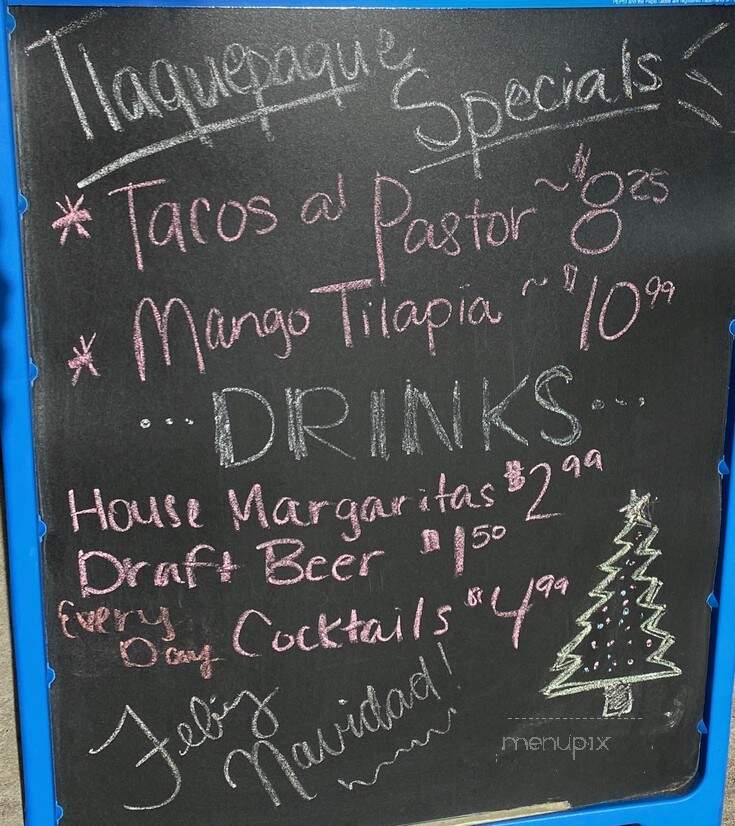 Tlaquepaque
Specials
* Tacos al Pastor ~ $8 25
* Mango Tilapia ~ $10 99
... DRINKS ...
House Margaritas $2 99
Draft Beer $1 50
Every Day Cocktails $4 99
Feliz
Navidad!
menupix